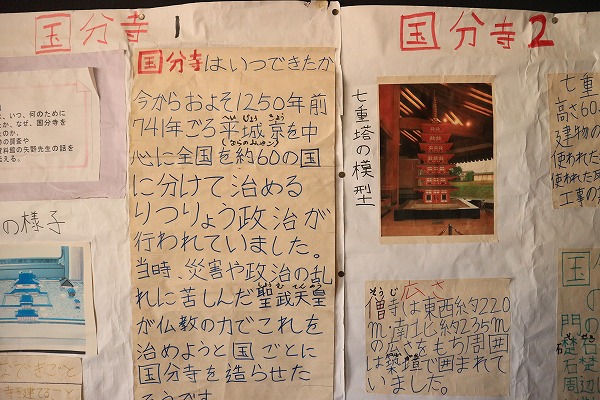 国分寺 1
国分寺 2
、いつ、何のために
か、なぜ、国分寺を
たのか、
物の調査や
資料館の矢野先生の話を
伝える。
の様子
国分寺はいつできたか
今からおよそ1250年前
741年ごろ平城京を中
へいじょうきょう
(ならのみやこ)
心に全国を約60の国
に分けて治める
りつりょう政治が
行われていました。
当時、災害や政治の乱
れに苦しんだ聖武天皇
しょうむてんのう
が仏教の力でこれを
治めようと国ごとに
国分寺を造らせた
そうです
七重塔の模型
広さ
そうじ
僧寺は東西約220
m・南北約235m
の広さをもち周囲
は築壇で囲まれて
いました。
七重
高さ60
建物の
使われた
使われた
工事の
国
の
門
礎石
周